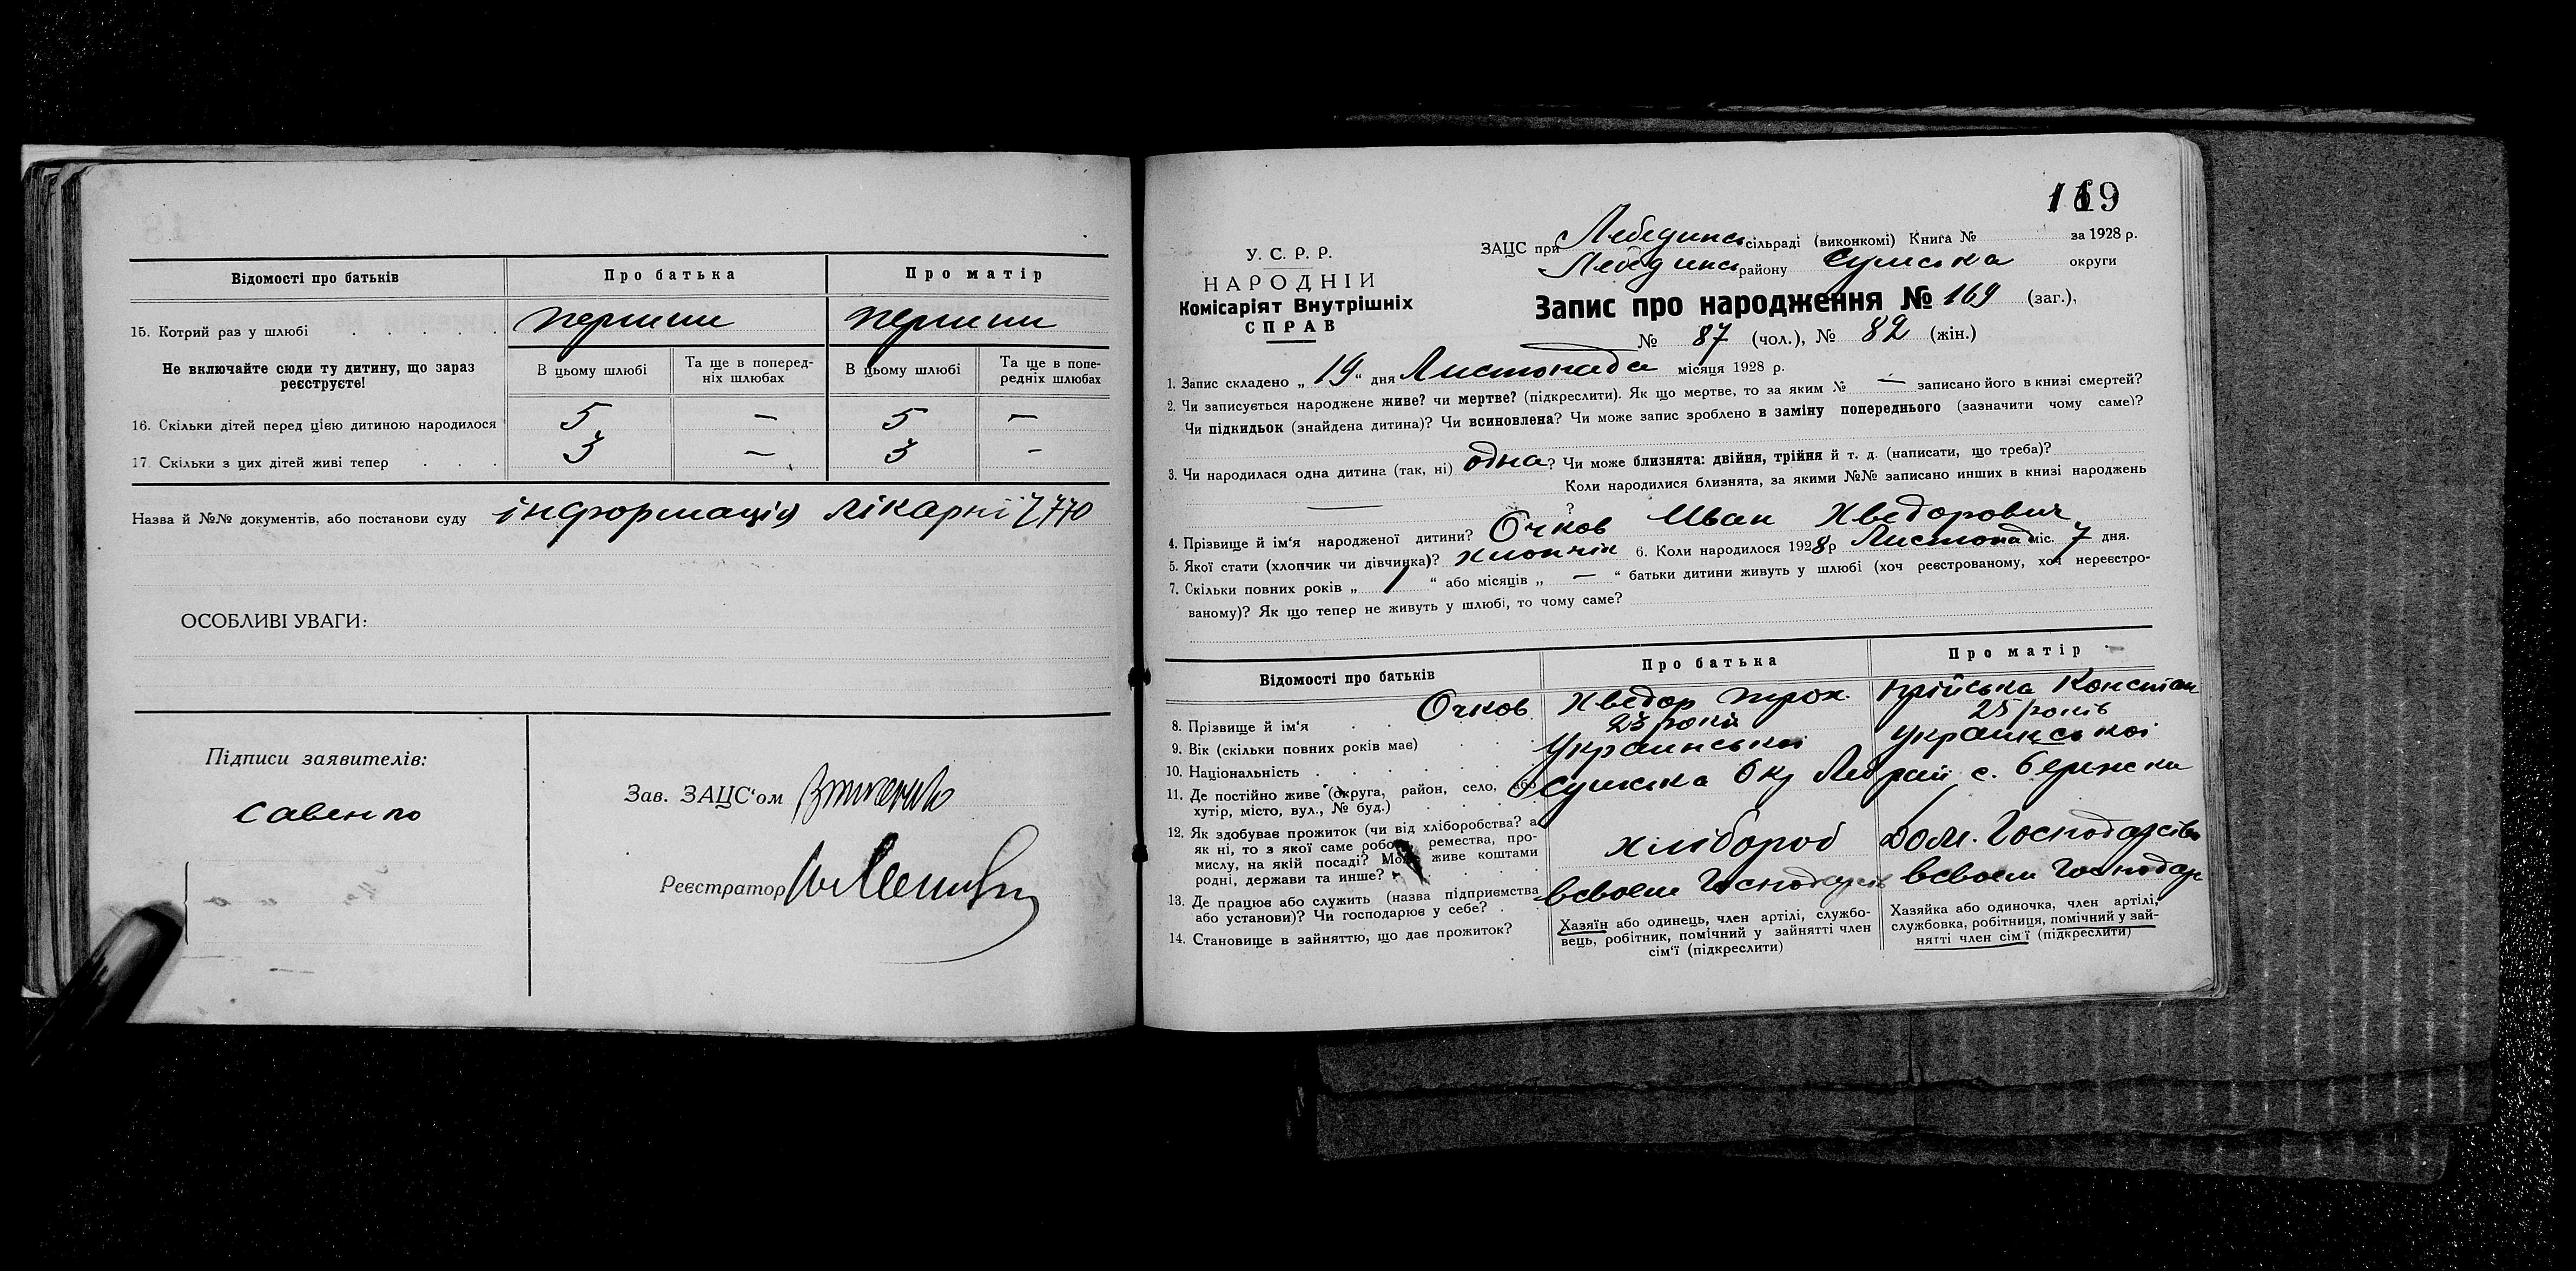 Відомості про батьків
Про батька
Про матір
15. Котрий раз у шлюбі
перший
перший
Не включайте сюди ту дитину, що зараз
реєструєте!
В цьому шлюбі
Та ще в поперед-
ніх шлюбах
В цьому шлюбі
Та ще в попе-
редніх шлюбах
16. Скільки дітей перед цією дитиною народилося 5 — 5 —
17. Скільки з цих дітей живі тепер 3 — 3 —
Назва й №№ документів, або постанови суду інформація лікарні
ОСОБЛИВІ УВАГИ:
Підписи заявителів:
Савенко
Зав. ЗАЦС'ом
Реєстратор
У. С. Р. Р.
НАРОДНІЙ
Комісаріят Внутрішніх
СПРАВ
ЗАЦС при Лебединс сільраді (виконкомі) Книга № за 1928 р.
Лебединс району Сумська округи
Запис про народження № 169 (заг.),
№ 87 (чол.), № 82 (жін.)
1. Запис складено „ 19 " дня Листопада місяця 1928 р.
2. Чи записується народжене живе? чи мертве? (підкреслити). Як що мертве, то за яким № — записано його в книзі смертей?
Чи підкидьок (знайдена дитина)? Чи всиновлена? Чи може запис зроблено в заміну попереднього (зазначити чому саме)?
3. Чи народилася одна дитина (так, ні) одна ? Чи може близнята: двійня, трійня й т. д. (написати, що треба)?
Коли народилися близнята, за якими №№ записано инших в книзі народжень
— ?
4. Прізвище й ім'я народженої дитини? Очков Иван Хведорович
5. Якої стати (хлопчик чи дівчинка)? хлопчик 6. Коли народилося 1928 р Листопад міс. 7 дня.
7. Скільки повних років „ " або місяців „ — " батьки дитини живуть у шлюбі (хоч реєстрованому, хоч нереєстро-
ваному)? Як що тепер не живуть у шлюбі, то чому саме?
Відомості про батьків
Про батька
Про матір
8. Прізвище й ім'я Очков Хведор Трох. Прiйська Констан
9. Вік (скільки повних років має) роки 25 років
10. Національність Украинської Украинської
11. Де постійно живе (округа, район, село, або Сумська Окр Леб рай с. Бережки
хутір, місто, вул., № буд.)
12. Як здобуває прожиток (чи від хліборобства? а
як ні, то з якої саме роботи, ремества, про-
мислу, на якій посаді? Може живе коштами
родні, держави та инше?
хлібороб
Дом. Господарство
13. Де працює або служить (назва підприємства
або установи)? Чи господарює у себе?
всвоем Господарстві
всвоем Господар
14. Становище в зайняттю, що дає прожиток?
Хазяїн або одинець, член артілі, службо-
вець, робітник, помічний у зайнятті член
сім'ї (підкреслити)
Хазяйка або одиночка, член артілі,
службовка, робітниця, помічний у зай-
нятті член сім'ї (підкреслити)